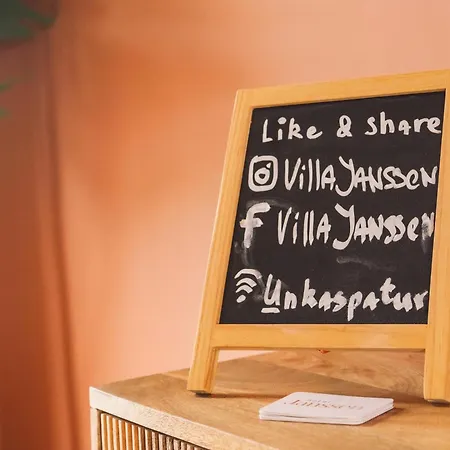 Like & share
VillA JANssen
VillA JANssen
Unkaspatur